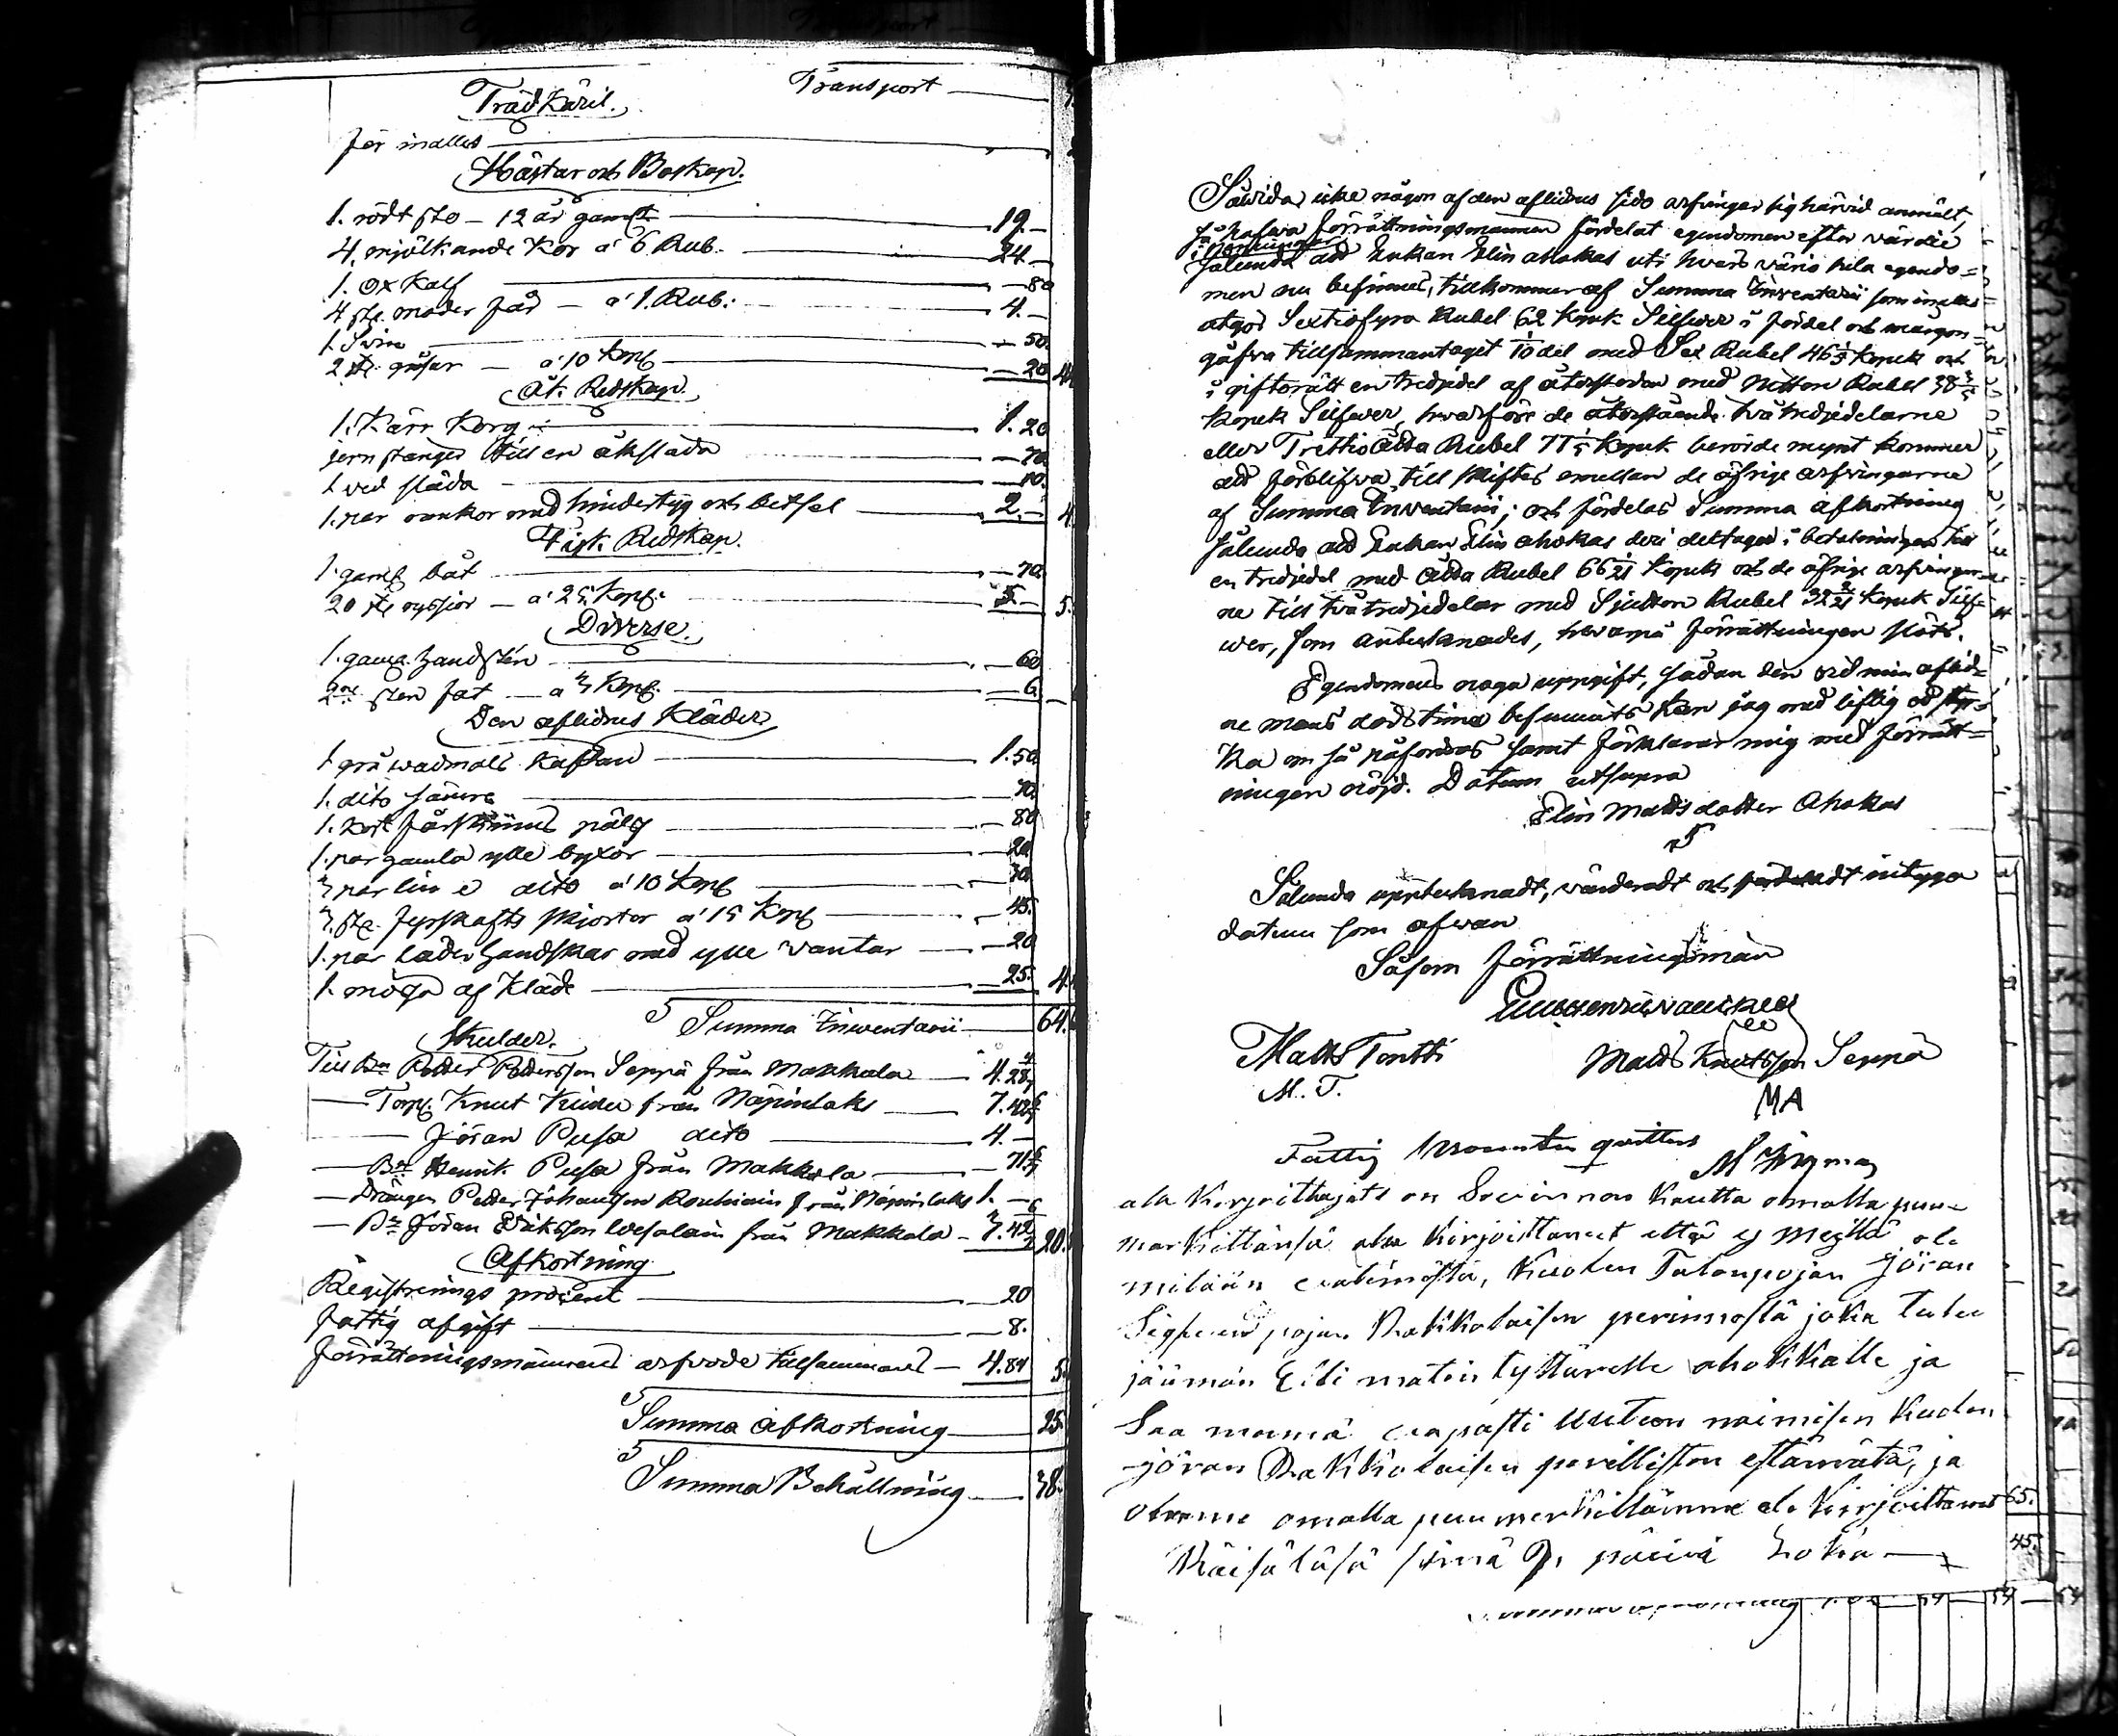 Transport
Träd Käril.
för inalles
Hästar och Boskap.
1. rödt sto - 12 år gamt 12.-
4. mjölkande Kor a' 6 Rub. 24.-
1. Ox Kalf - 80
4 st. moder får - a' 1. Rub. 4.-
1 Svin - 50.
2 st. gåsar - a' 10 Kop - 20
Åk. Redskap.
1. Kärr Korg 1.20
jern stänger till en åkslada - 70
1 ved släda - 10.
1. par rankor med hindertyg och betsel 2.-
Fisk. Redskap.
1 gaml båt - 70.
20 st. ryssjor - a' 25 Kop. 5.-
Diverse.
1. gamal handsten - 60
2ne sten fat - a' 3 Kop. - 6
Den aflidnes Kläder
1 grå wadmals Kaftan 1.50
1. dito sämre - 70.
1. Kort fårskinns päls - 80
1. par gamla ylle byxor - 20
3 par linne dito a' 10 Kop - 30
3. st. fyrskafts skjortor a' 15 Kop - 45.
1. par läder handskar med ylle wantar - 20
1. mössa af Kläde - 25.
Summa Inventarii 64.
Skulder.
Till Bn Petter Pettersson Seppä från Makkola 4.28 4/7
Torp. Knut från Näpinlaks 7.42 6/7
Jöran Pusa dito 4.-
Bn Henrik Pusa från Makkola - 71 3/7
Drängen Petter Johansson Rouhiain från Näpinlaks 1.-
Bn Jöran Eriksson Wesalain från Makkola - 3.42 6/7 20.
Afkortning
Registrerings procent - 20
Fattig afgift - 8.
Förrättningsmännens arfvode tillsammans - 4.84 5.
Summa Afkortning 25.
Summa Behållning 38.
Såvida icke någon af den aflidnes sido arfvingar sig härvid anmält,
så hafva Förrättningsmännen fördelat egendomen efter värdie
i penningar
sålunda att Enkan Elin Ahokas uti hvars värjo hela egendo=
men nu befinnes, tillkommer af Summa Inventarii som inalles
utgör Sextiofyra Rubel 62 Kopek Silfwer i fördel och morgon=
gåfva tillsammantaget 1/10 del med Sex Rubel 46 1/5 Kopek och
i giftorätt en tredjedel af återstoden med Nitton Rubel 38 3/5
Kopek Silfwer, hvarföre de återstående två tredjedelarne
eller Trettio åtta Rubel 77 1/5 Kopek berörde mynt kommer
att förblifva till skiftes emellan de öfrige arfvingarne
af Summa Inventarii; och fördelas Summa afkortning
sålunda att Enkan Elin Ahokas deri deltager i betalningen till
en tredjedel med Åtta Rubel 66 1/21 Kopek och de öfrige arfvingar=
ne till två tredjedelar med Sjutton Rubel 32 2/21 Kopek Silf=
wer, som antecknades, hvarpå förrättningen slöts.
Egendomens noga uppgift, sådan den vid min aflid=
ne mans dödstima befunnits Kan jag med liflig ed styr=
ka om så påfordras samt förklarar mig med förrätt=
ningen nöjd. Datum utsupra
Elin Matts dotter Ahokas
Sålunda uppteknadt, värderadt och fördeladt intyga
datum som ofwan
Såsom Förrättningsmän
Matts Tontti
M. T.
Matts Knutsson Seppä
MA
Fattig Prosenten quitteras
ala Kirjoittajats on Sowinnon Kautta omalla puu=
markillänsä alla Kirjoittaneet että ej meillä ole
mitään vaatimista, Kuolen Talonpojan Jöran
pojan Makkolaisen perinnöstä joka tulee
jäämän Eili matin tyttärelle ahokkalle ja
Saa mennä vapasti Uuteen naimisen Kuolen
Jöran Makkolaisen perillisten estämätä, ja
olemme omalla puumerkillämme ala Kirjoittanet
Käisäläsä sinä päivä